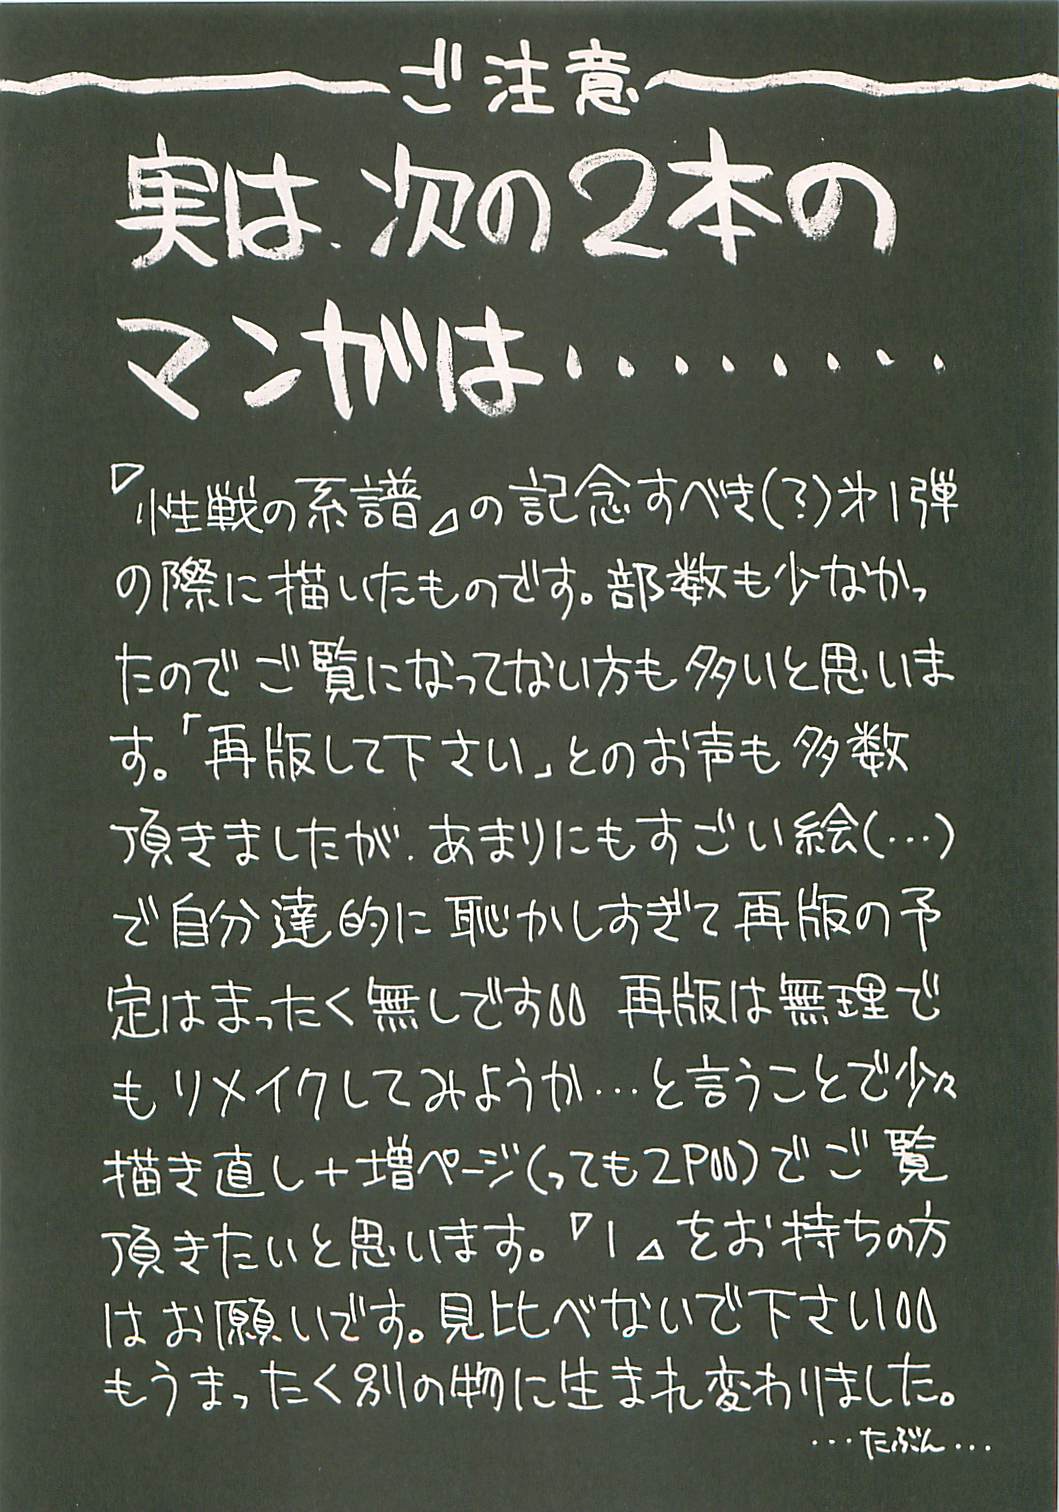 ご注意
実は、次の2本の
マンガは‥‥‥‥
『性戦の系譜』の記念すべき(?)才1弾
の際に描いたものです。部数も少なかっ
たのでご覧になってない方も多いと思いま
す。「再版して下さい」とのお声も多数
頂きましたが、あまりにもすごい絵(…)
で自分達的に恥かしすぎて再版の予
定はまったく無しです 再版は無理で
もリメイクしてみようか…と言うことで少々
描き直し+増ページ(っても2P)でご覧
頂きたいと思います。『1』をお持ちの方
はお願いです。見比べないで下さい
もうまったく別の物に生まれ変わりました。
…たぶん…